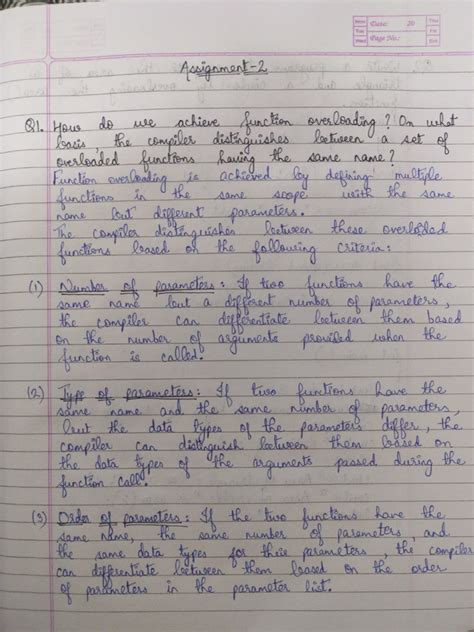 Date: 20
Page No.:
Assignment-2
Q1. How do we achieve function overloading? On what
basis, the compiler distinguishes between a set of
overloaded functions having the same name?
Function overloading is achieved by defining multiple
functions in the same scope with the same
name but different parameters.
The compiler distinguishes between these overloaded
functions based on the following criteria:
(1) Number of parameters: If two functions have the
same name but a different number of parameters,
the compiler can differentiate between them based
on the number of arguments provided when the
function is called.
(2) Type of parameters: If two functions have the
same name and the same number of parameters,
but the data types of the parameters differ, the
compiler can distinguish between them based on
the data types of the arguments passed during the
function call.
(3) Order of parameters: If the two functions have the
same name, the same number of paremeters, and
the same data types for their parameters, the compiler
can differentiate between them based on the order
of parameters in the parameter list.